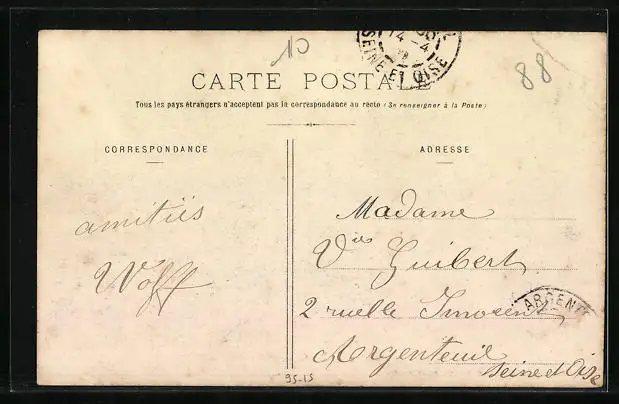 10
14-4
SEINE-ET-OISE
88
CARTE POSTALE
Tous les pays étrangers n'acceptent pas la correspondance au recto (Se renseigner à la Poste)
CORRESPONDANCE
ADRESSE
amitiés
Wolff
Madame
Vve Guibert
2 ruelle Inocent
ARGENT
Argenteuil
Seine et Oise
95-15